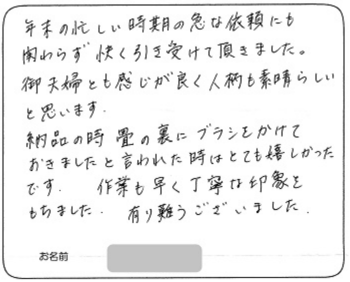 年末の忙しい時期の急な依頼にも
関わらず 快く引き受けて頂きました。
御夫婦とも感じが良く人柄も素晴らしい
と思います.
納品の時 畳の裏にブラシをかけて
おきましたと言われた時はとても嬉しかった
です. 作業も早く丁寧な印象を
もちました. 有り難うございました.
お名前